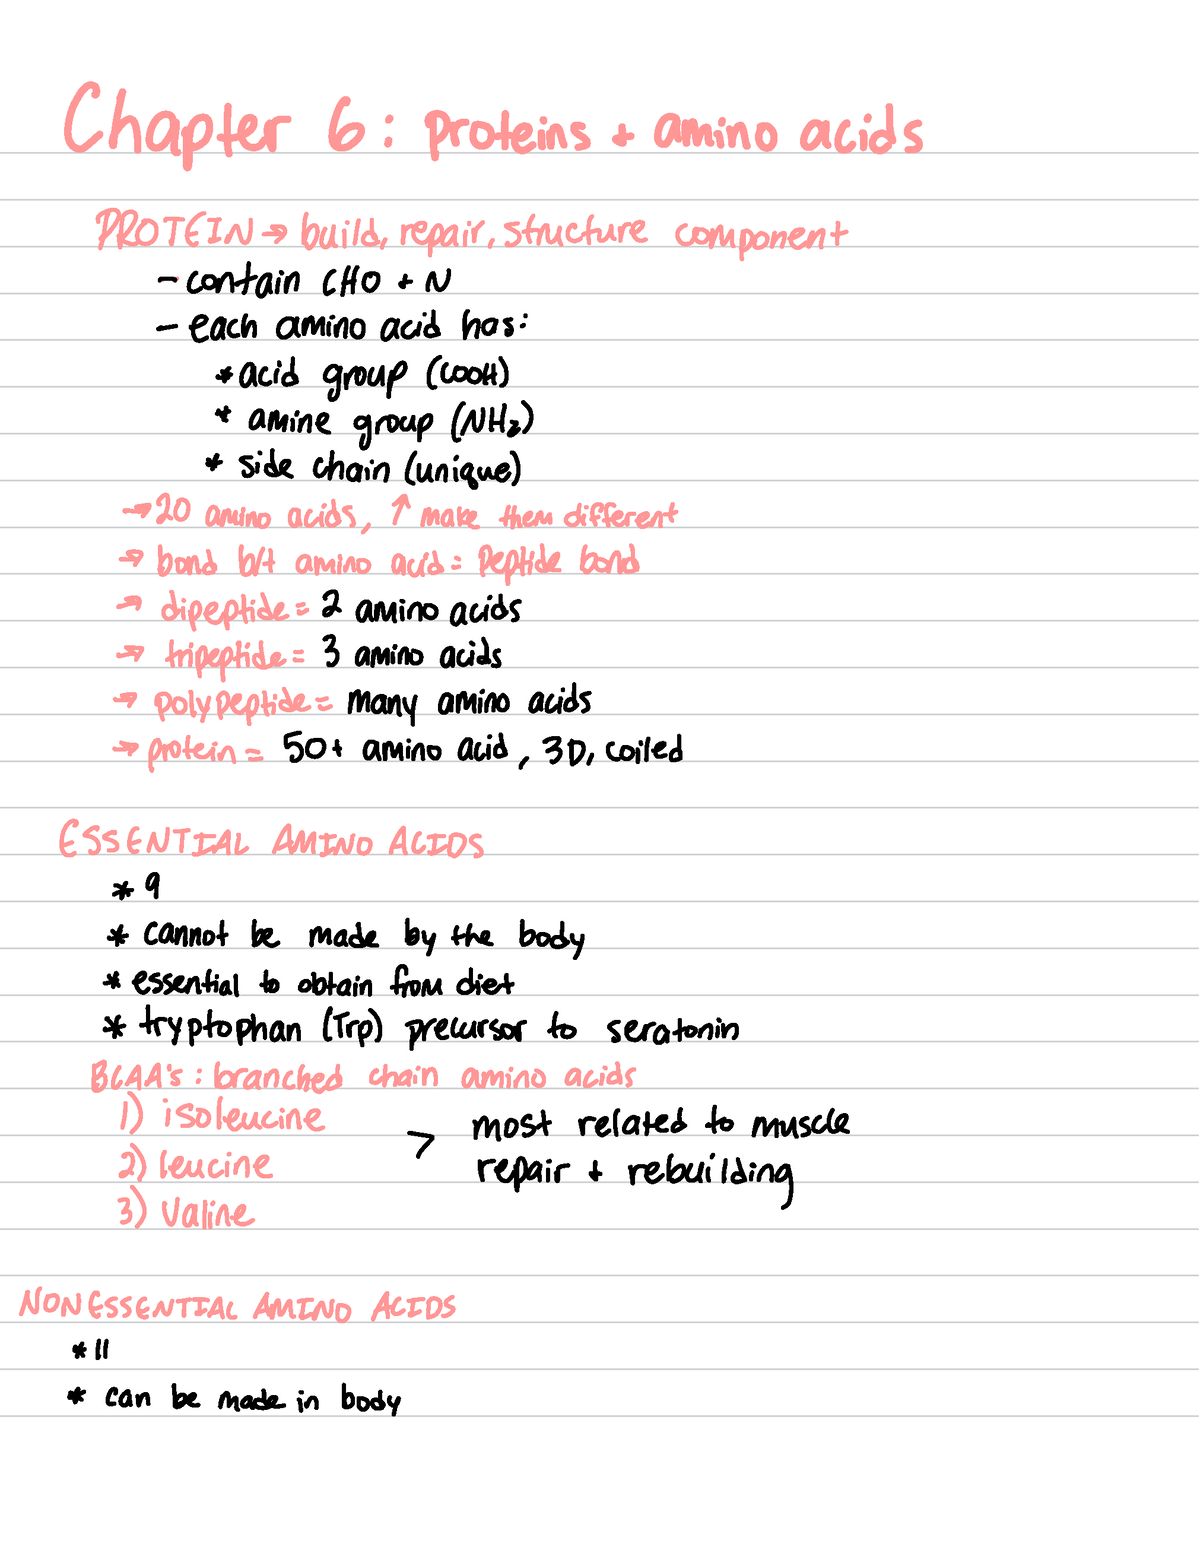 Chapter 6: proteins + amino acids
PROTEIN → build, repair, structure component
- contain CHO + N
- each amino acid has:
* acid group (COOH)
* amine group (NH₂)
* side chain (unique)
→ 20 amino acids, ↑ make them different
→ bond b/t amino acid = peptide bond
→ dipeptide = 2 amino acids
→ tripeptide = 3 amino acids
→ polypeptide = many amino acids
→ protein = 50+ amino acid, 3D, coiled
ESSENTIAL AMINO ACIDS
* 9
* cannot be made by the body
* essential to obtain from diet
* tryptophan (Trp) precursor to seratonin
BCAA's: branched chain amino acids
1) isoleucine
2) leucine
3) valine
> most related to muscle
repair + rebuilding
NONESSENTIAL AMINO ACIDS
* 11
* can be made in body